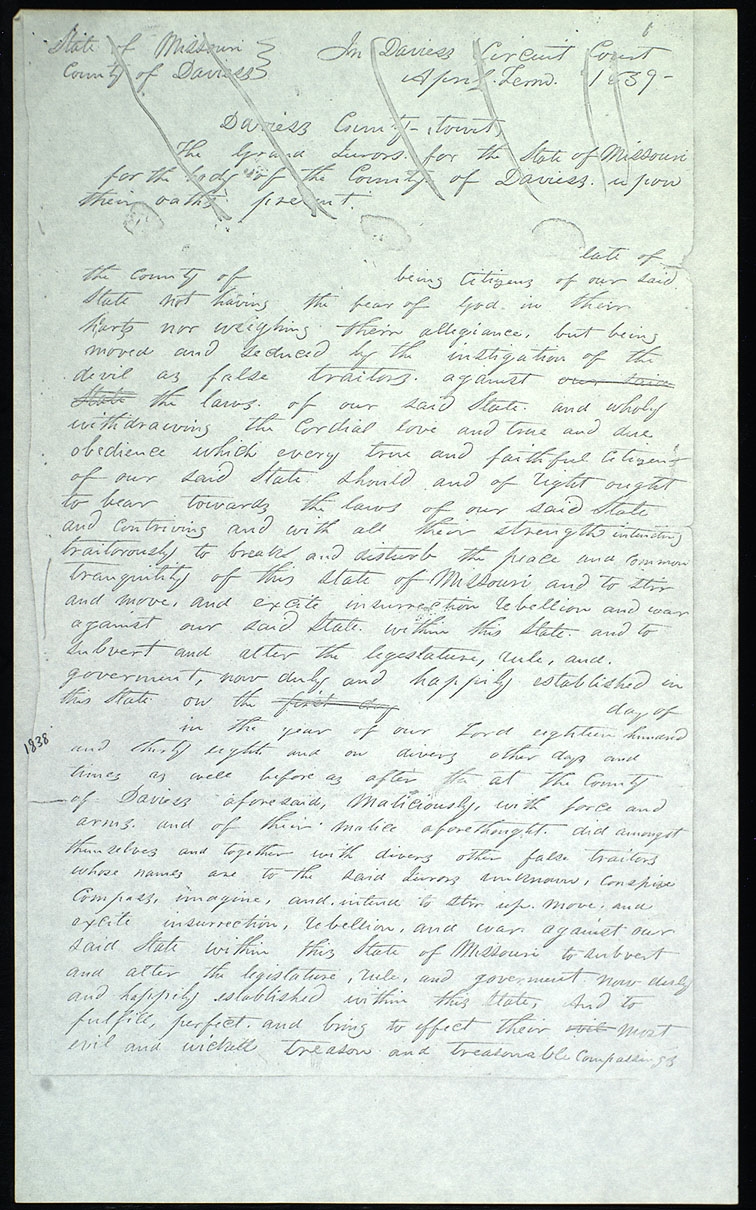 State of Missouri } In Daviess Circuit Court
County of Daviess } April Term. 1839-
Daviess County - towit,
The Grand Jurors. for the State of Missouri
for the body of the County of Daviess. upon
their oaths present.
late of
the County of being Citizens of our said
State not having the fear of God. in their
harts nor weighing their allegiance, but being
moved and seduced by the instigation of the
devil as false traitors. against our said
State the laws. of our said State. and wholy
withdrawing the Cordial love and true and due
obedience which every true and faithful Citizen
of our said State should and of right ought
to bear towards the laws of our said State
and Contriving and with all their strengths intending
traitorously to break and disturb the peace and common
tranquility of this State of Missouri and to stir
and move, and excite insurrection rebellion and war
against our said State. within this State. and to
subvert and alter the legeslature, rule, and.
goverment, now duly and happily established in
this State on the first day day of
in the year of our Lord eighteen hundred
1838
and thirty eight and on divers other days and
times as well before as after the at the County
of Daviess aforesaid, Maliciously, with force and
arms. and of their malice aforethought. did amongst
themselves and together with divers other false traitors
whose names are to the said Jurors unknown, Conspire
Compass, imagine, and. intend to stir up. move. and
excite insurrection, rebellion, and war. against our
said State within this State of Missouri to subvert
and alter the legeslature, rule, and goverment now duly
and happily established within this State, And to
fulfill, perfect. and bring to effect their evil most
evil and wicked treason and treasonable Compassings